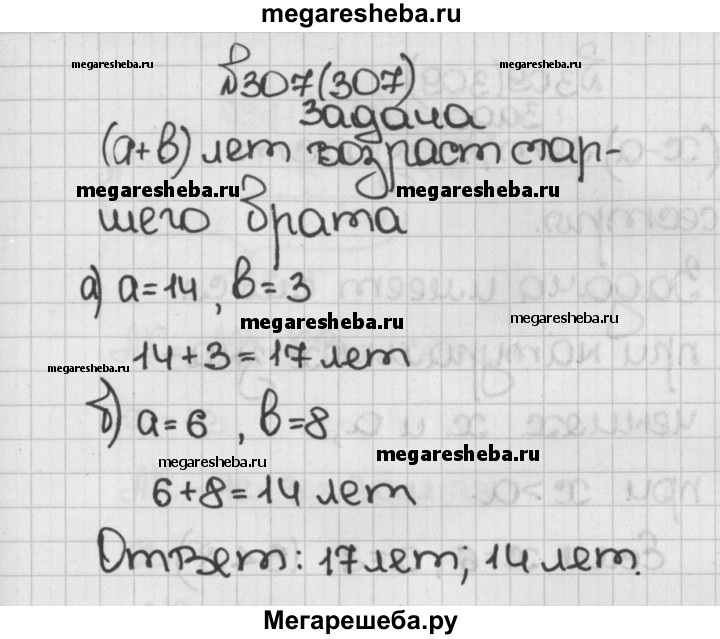 megaresheba.ru
megaresheba.ru №307(307) megaresheba.ru
задача
(а+в) лет возраст стар-
megaresheba.ru megaresheba.ru
шего брата
а) а=14, в=3
megaresheba.ru megaresheba.ru
14+3=17 лет
megaresheba.ru
б) а=6, в=8
megaresheba.ru megaresheba.ru
6+8=14 лет
Ответ: 17 лет; 14 лет.
Мегарешеба.ру